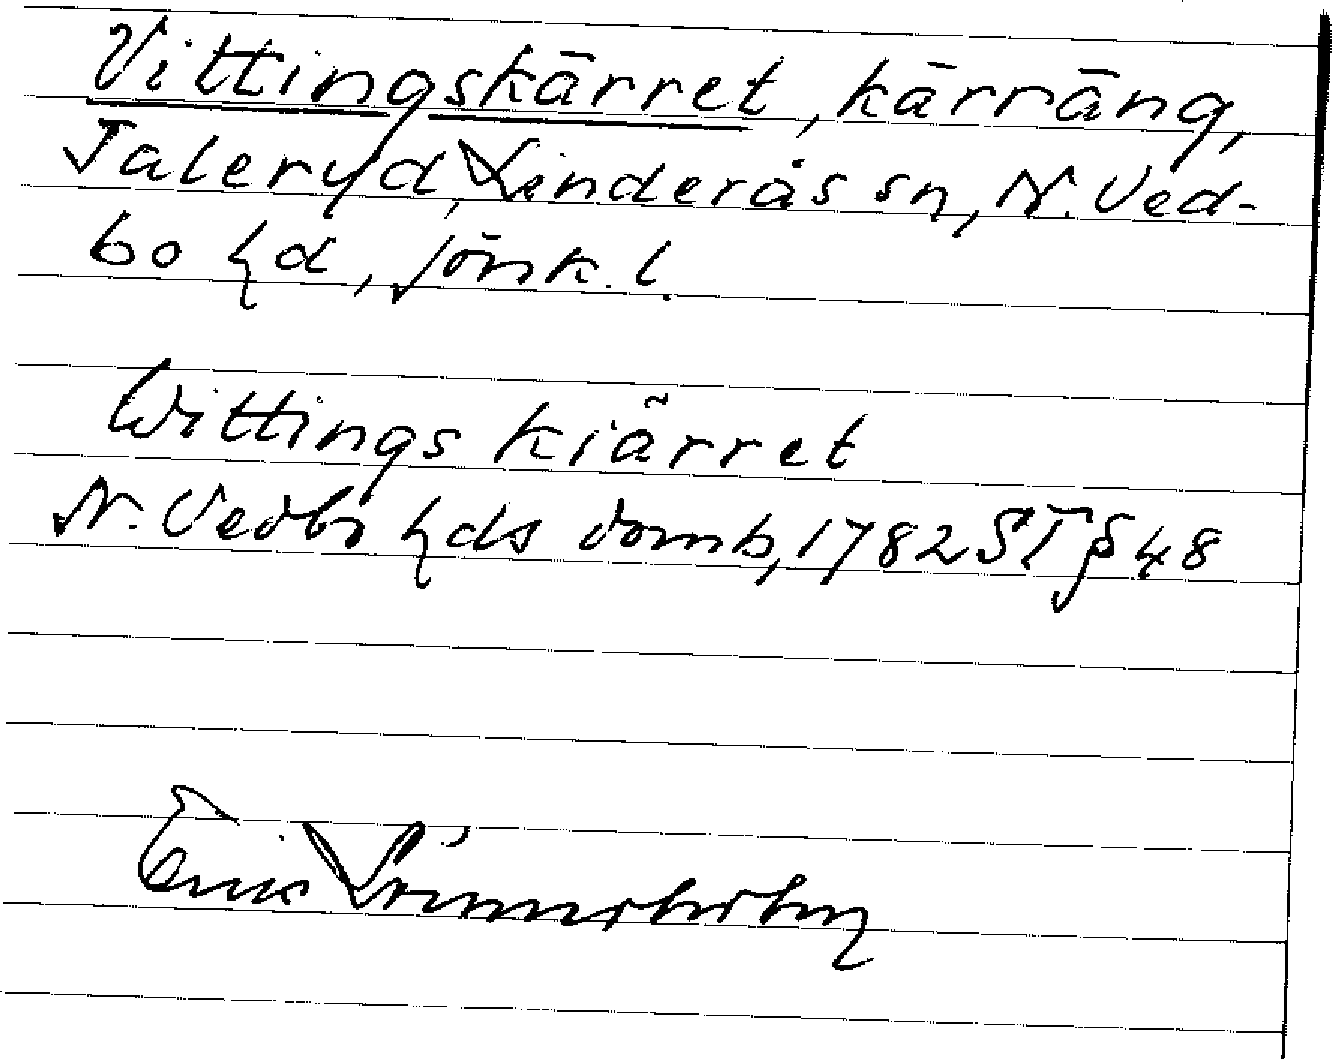 Vittingskärret, kärräng,
Jaleryd, Linderås sn, N. Ved-
bo hd, Jönk. l.
Wittings kiärret
N. Vedbo hds domb, 1782 ST § 48
Erik Lönnerholm